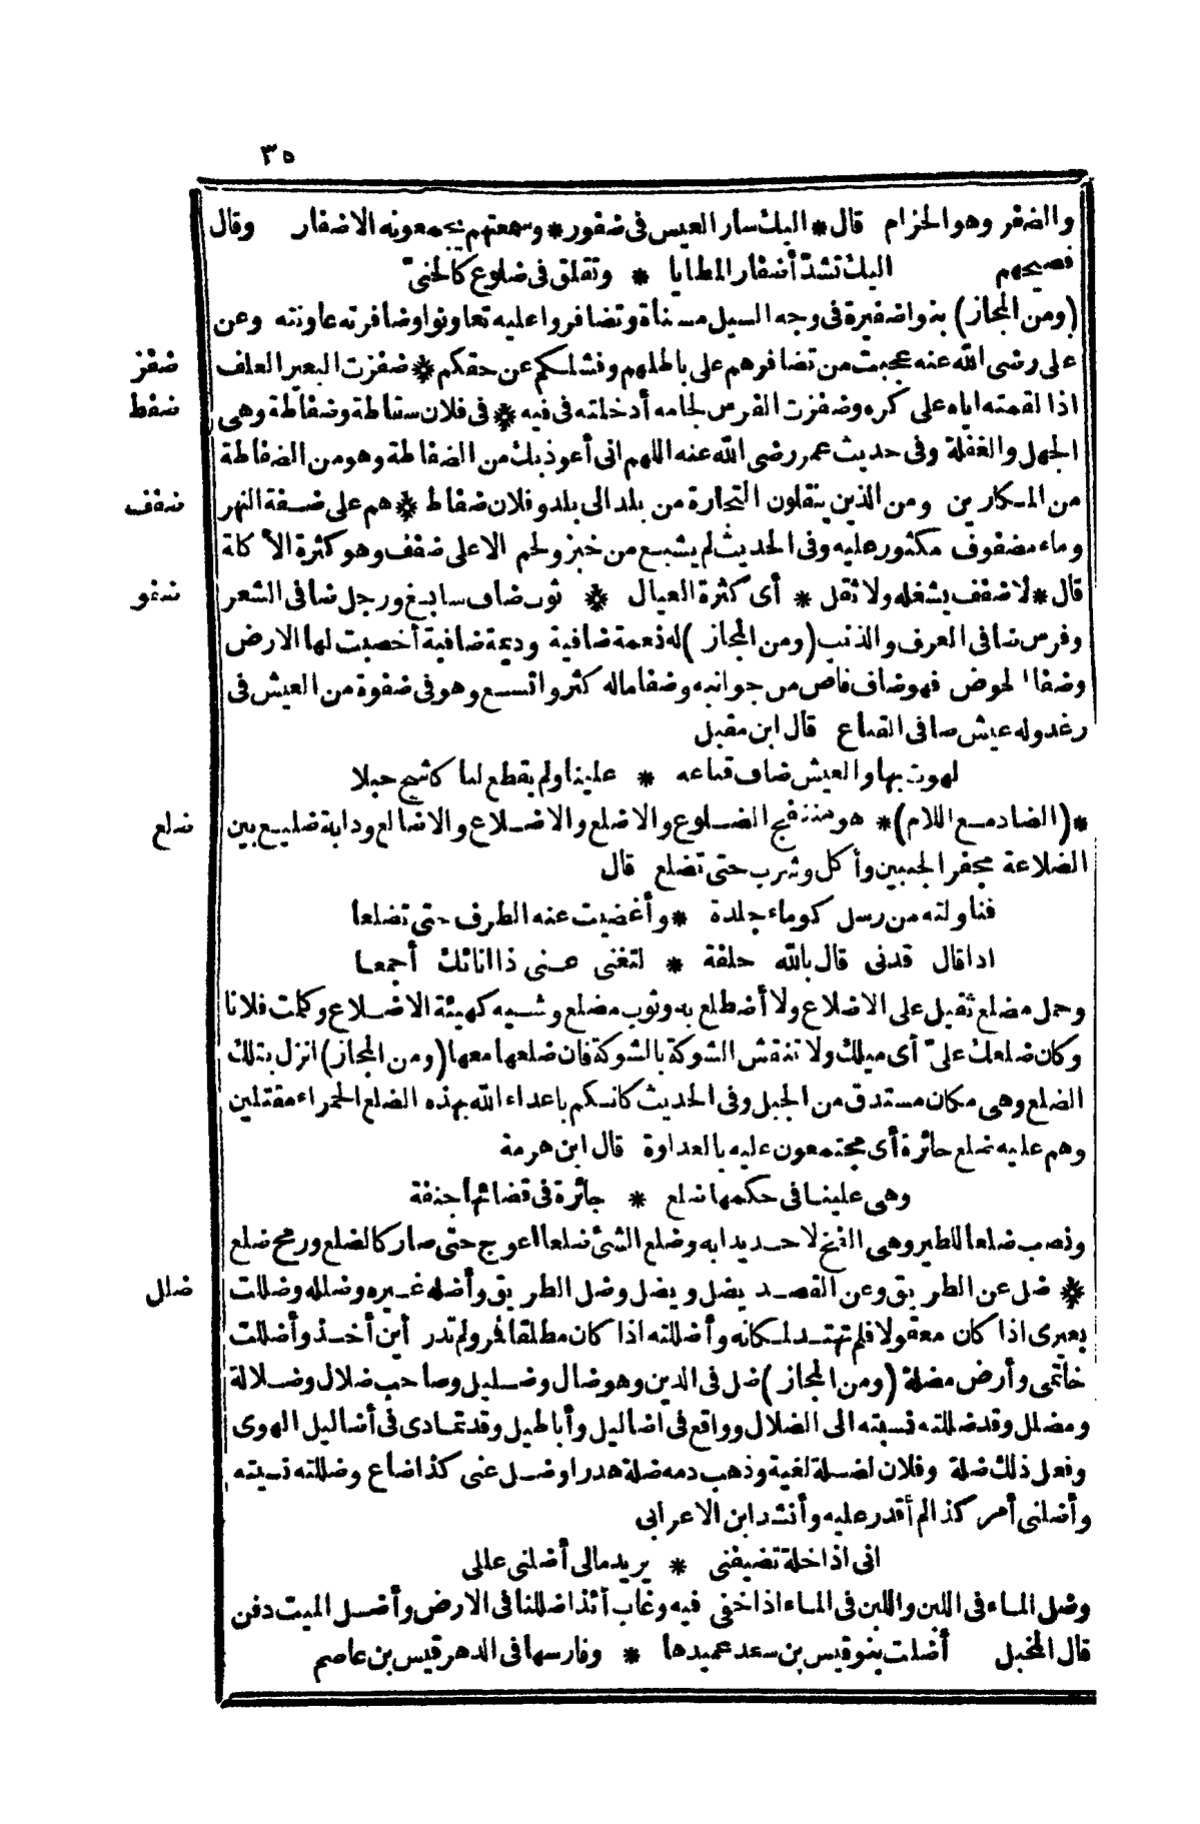 ٣٥
والضفر وهو الحزام قال * اليك سار العيس فى ضفور * وسمعتهم يجمعونه الاضفار وقال
فصيحهم اليك تشدّ أضفار المطايا * وتقلق فى ضلوع كالحنىّ
(ومن المجاز) بنوا ضفيرة فى وجه السيل مسناة وتضافروا عليه تعاونوا وضافرته عاونته وعن
على رضى الله عنه عجبت من تضافرهم على باطلهم وفشلكم عن حقكم * ضفزت البعير العلف
ضفز
اذا لقمته اياه على كره وضفزت الفرس لجامه أدخلته فى فيه * فى فلان سقاطة وضفاطة وهى
ضفط
الجهل والغفلة وفى حديث عمر رضى الله عنه اللهم انى أعوذ بك من الضفاطة وهو من الضفاطة
من المكارين ومن الذين ينقلون التجارة من بلد الى بلد وفلان ضفاط * هم على ضفة النهر
ضفف
وماء مضفوف مكثور عليه وفى الحديث لم يشبع من خبز ولحم الا على ضفف وهو كثرة الأكلة
قال * لا ضفف يشغله ولا ثقل * أى كثرة العيال * ثوب ضاف سابغ ورجل ضافى الشعر
ضفو
وفرس ضافى العرف والذنب (ومن المجاز) له نعمة ضافية وديمة ضافية أخصبت لها الارض
وضفا الحوض فهو ضاف فاض من جوانبه وضفا ماله كثر واتسع وهو فى ضفوة من العيش فى
رغد وله عيش ضافى القناع قال ابن مقبل
لهوت بها والعيش ضاف قناعه * علينا ولم يقطع لنا كاشح حبلا
*(الضاد مع اللام)* هو منتفج الضلوع والاضلع والاضلاع والاضالع ودابة ضليع بين
ضلع
الضلاعة مجفر الجنبين وأكل وشرب حتى تضلع قال
فناولته من رسل كوماء جلدة * وأغضيت عنه الطرف حتى تضلعا
اذا قال قدنى قال بالله حلفة * لتغنى عنى ذا انائك أجمعا
وحمل مضلع ثقيل على الاضلاع ولا أضطلع به وثوب مضلع وشيه كهيئة الاضلاع وكلمت فلانا
وكان ضلعك علىّ أى ميلك ولا تنقش الشوكة بالشوكة فان ضلعها معها (ومن المجاز) انزل بتلك
الضلع وهى مكان مستدق من الجبل وفى الحديث كانكم ياعداء الله بهذه الضلع الحمراء مقتلين
وهم عليه ضلع جائرة أى مجتمعون عليه بالعداوة قال ابن هرمة
وهى علينا فى حكمها ضلع * جائرة فى قضائها جنفة
ونصب ضلعا للطير وهى الفخ لاحديدابه وضلع الشئ ضلعا اعوج حتى صار كالضلع ورمح ضلع
* ضل عن الطريق وعن القصد يضل ويضل وضل الطريق وأضله غيره وضلله وضللت
ضلل
بعيرى اذا كان معقولا فلم تهتد لمكانه وأضللته اذا كان مطلقا فمر ولم تدر أين أخذ وأضللت
خاتمى وأرض مضلة (ومن المجاز) ضل فى الدين وهو ضال وضليل وصاحب ضلال وضلالة
ومضلل وقد ضللته نسبته الى الضلال وواقع فى اضاليل وأباطيل وقد تمادى فى أضاليل الهوى
وفعل ذلك ضلة وفلان لضلة لغية وذهب دمه ضلة هدرا وضل عنى كذا ضاع وضللته نسيته
وأضلنى أمر كذا لم أقدر عليه وأنشد ابن الاعرابى
انى اذا خلة تضيفنى * يريد مالى أضلنى عللى
وضل الماء فى اللبن واللبن فى الماء اذا خفى فيه وغاب أئذا ضللنا فى الارض وأضل الميت دفن
قال المخبل أضلت بنو قيس بن سعد عميدها * وفارسها فى الدهر قيس بن عاصم